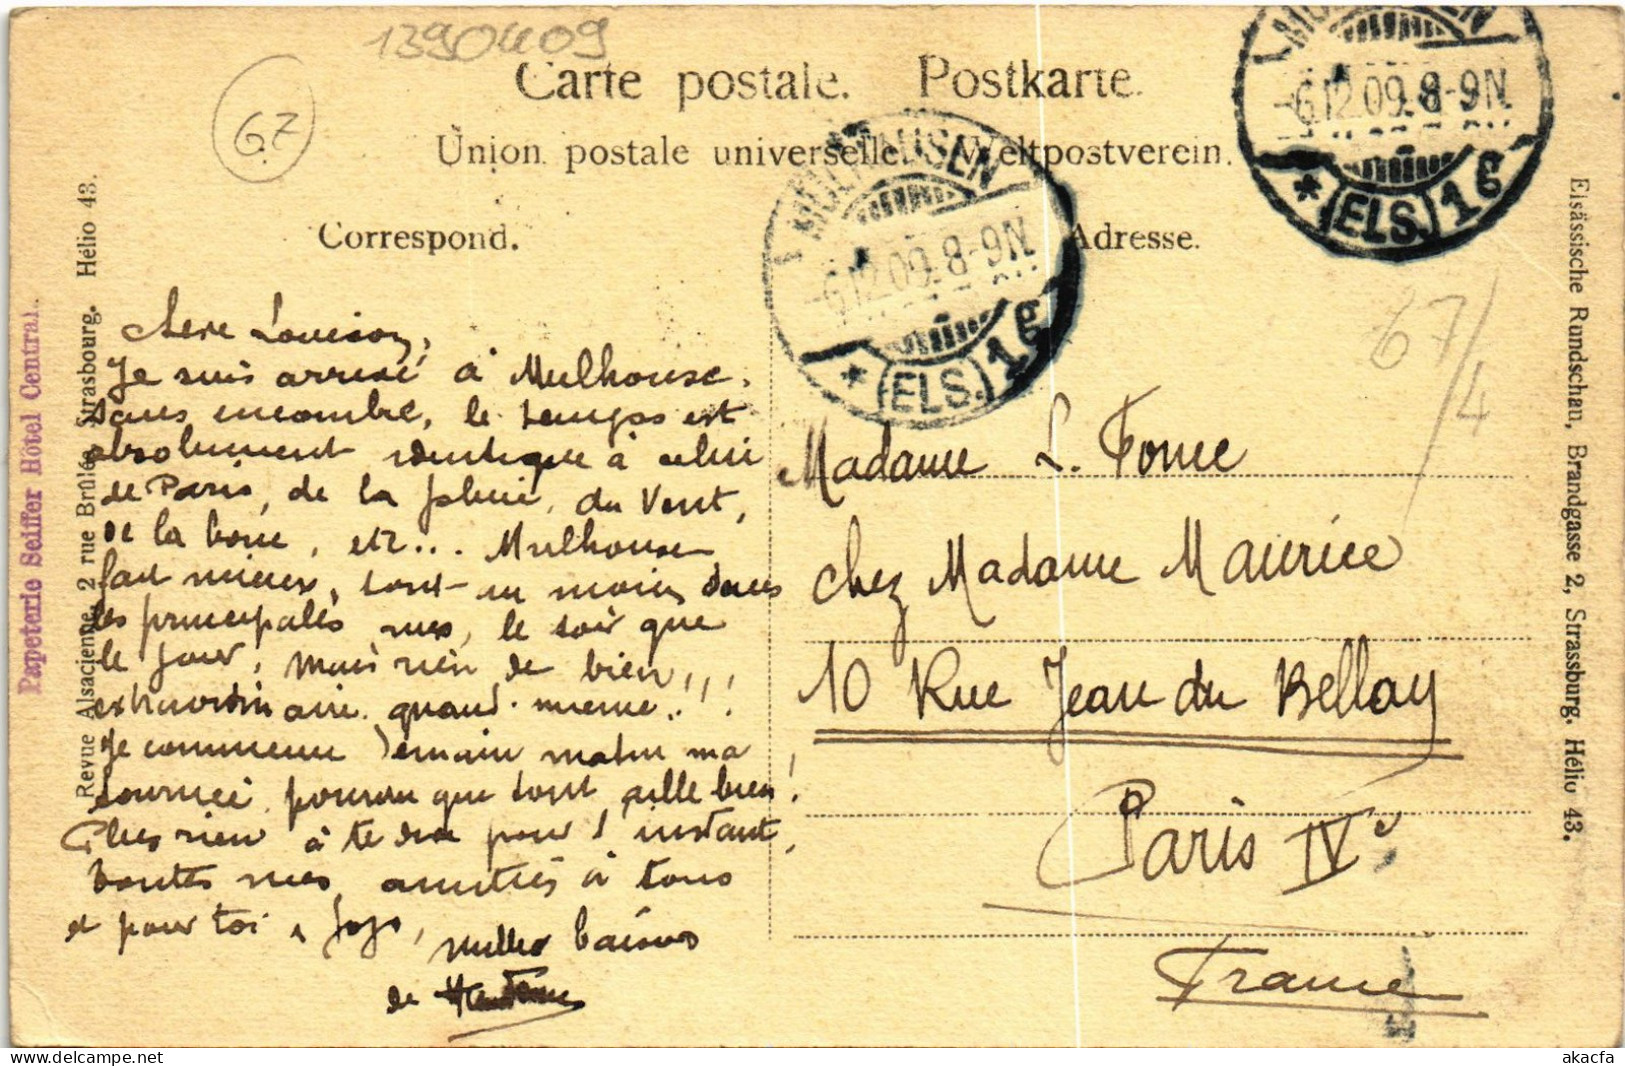 1390409
67
Carte postale. Postkarte.
Union postale universelle. Weltpostverein.
Correspond.
Adresse.
MÜLHAUSEN
-6.12.09.8-9N.
* (ELS.) 1 g
MÜLHAUSEN
-6.12.09.8-9N.
* (ELS.) 1 g
Papeterie Seiffer Hôtel Central.
Revue Alsacienne, 2 rue Brûlée, Strasbourg. Hélio 43.
Elsässische Rundschau, Brandgasse 2, Strassburg. Hélio 43.
67/4
Chère Louison,
Je suis arrivé à Mulhouse.
sans encombre, le temps est
absolument identique à celui
de Paris, de la pluie, du vent,
de la boue, etc... Mulhouse
fait mieux, tout au moins dans
les principales rues, le soir que
le jour, mais rien de bien
extraordinaire quand même..!!!
Je commence demain matin ma
tournée, pourvu que tout aille bien!
Plus rien à te dire pour l'instant,
toutes mes amitiés à tous
et pour toi, mille baisers
de
Madame L.
chez Madame Maurice
10 Rue Jean du Bellay
Paris IVe
France
akacfa